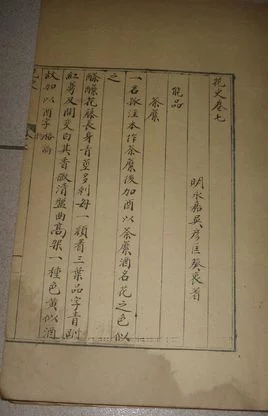 花史卷七
明永嘉吳彥匡葵衷著
能品
荼縻
一名本作荼縻後加酉以荼縻酒名花之色似
之
酴醿花藤身青莖多刺每一穎着三葉品字青跗
紅萼及開變白其香微清盤曲高架一種色黃似酒
故加以酉字